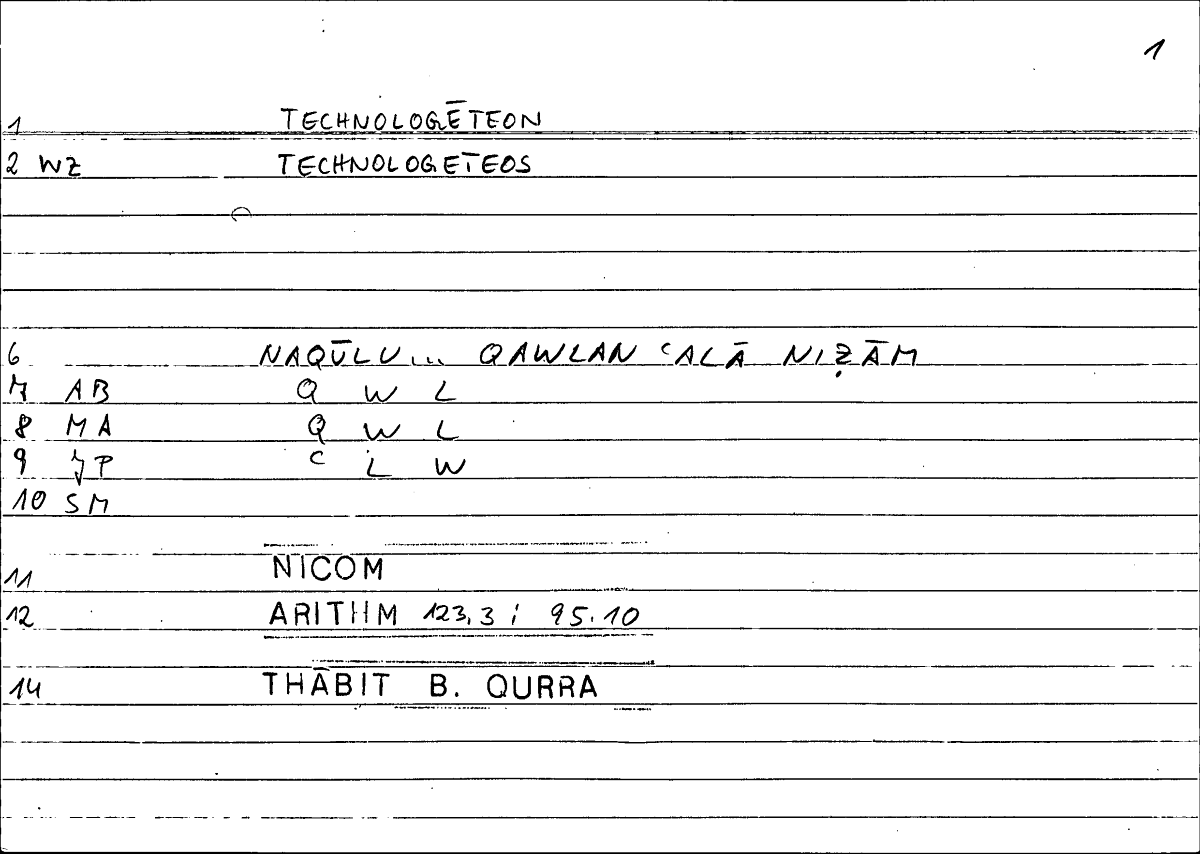 1
1 TECHNOLOGĒTEON
2 WZ TECHNOLOGETEOS
6 NAQŪLU... QAWLAN ʿALĀ NIẒĀM
7 AB Q W L
8 MA Q W L
9 JP ʿ L W
10 SM
11 NICOM
12 ARITHM 123,3 ; 95.10
14 THĀBIT B. QURRA